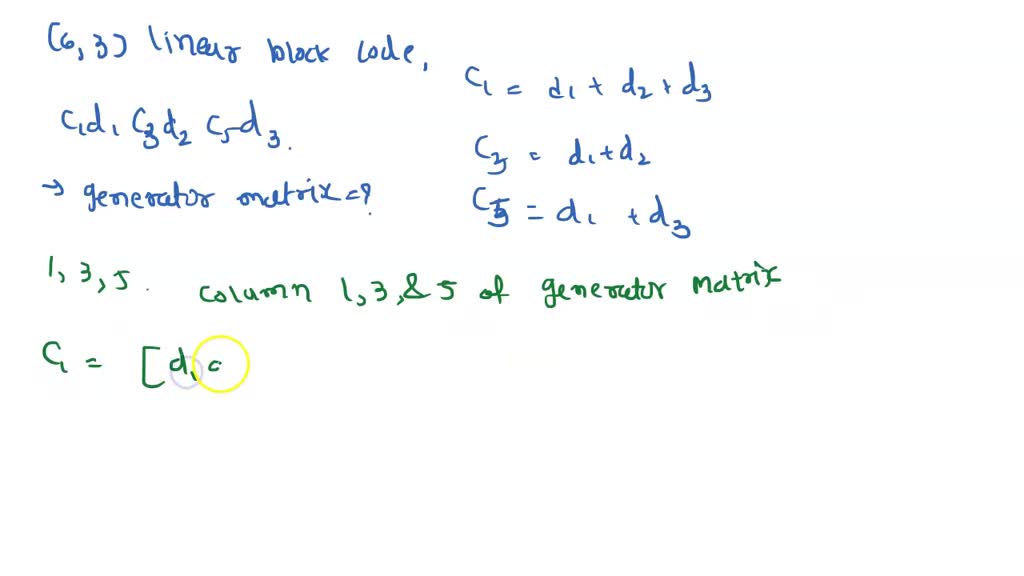 (6,3) linear block code,
c1d1 C3d2 C5d3.
→ generator matrix=?
C1 = d1 + d2 + d3
C3 = d1+d2
C5 = d1 + d3
1, 3, 5. column 1, 3, & 5 of generator matrix
C1 = [d1